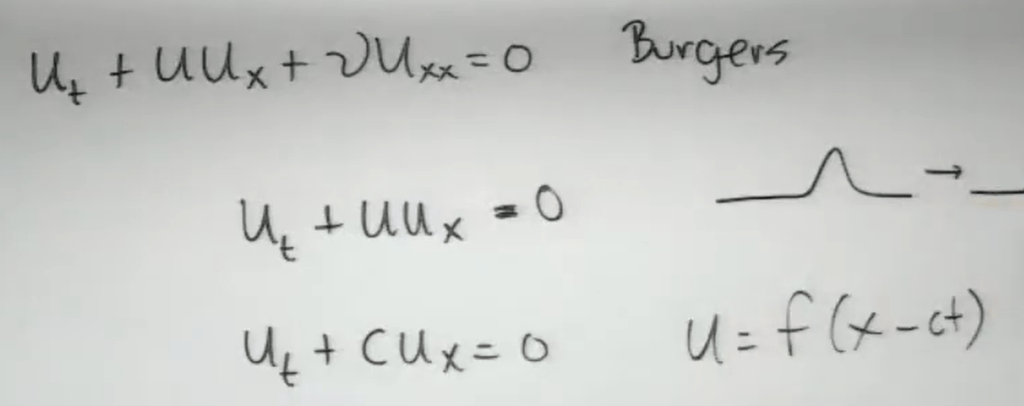 u_t + u u_x + ν u_xx = 0 Burgers
u_t + u u_x = 0
u_t + c u_x = 0 u = f(x - ct)